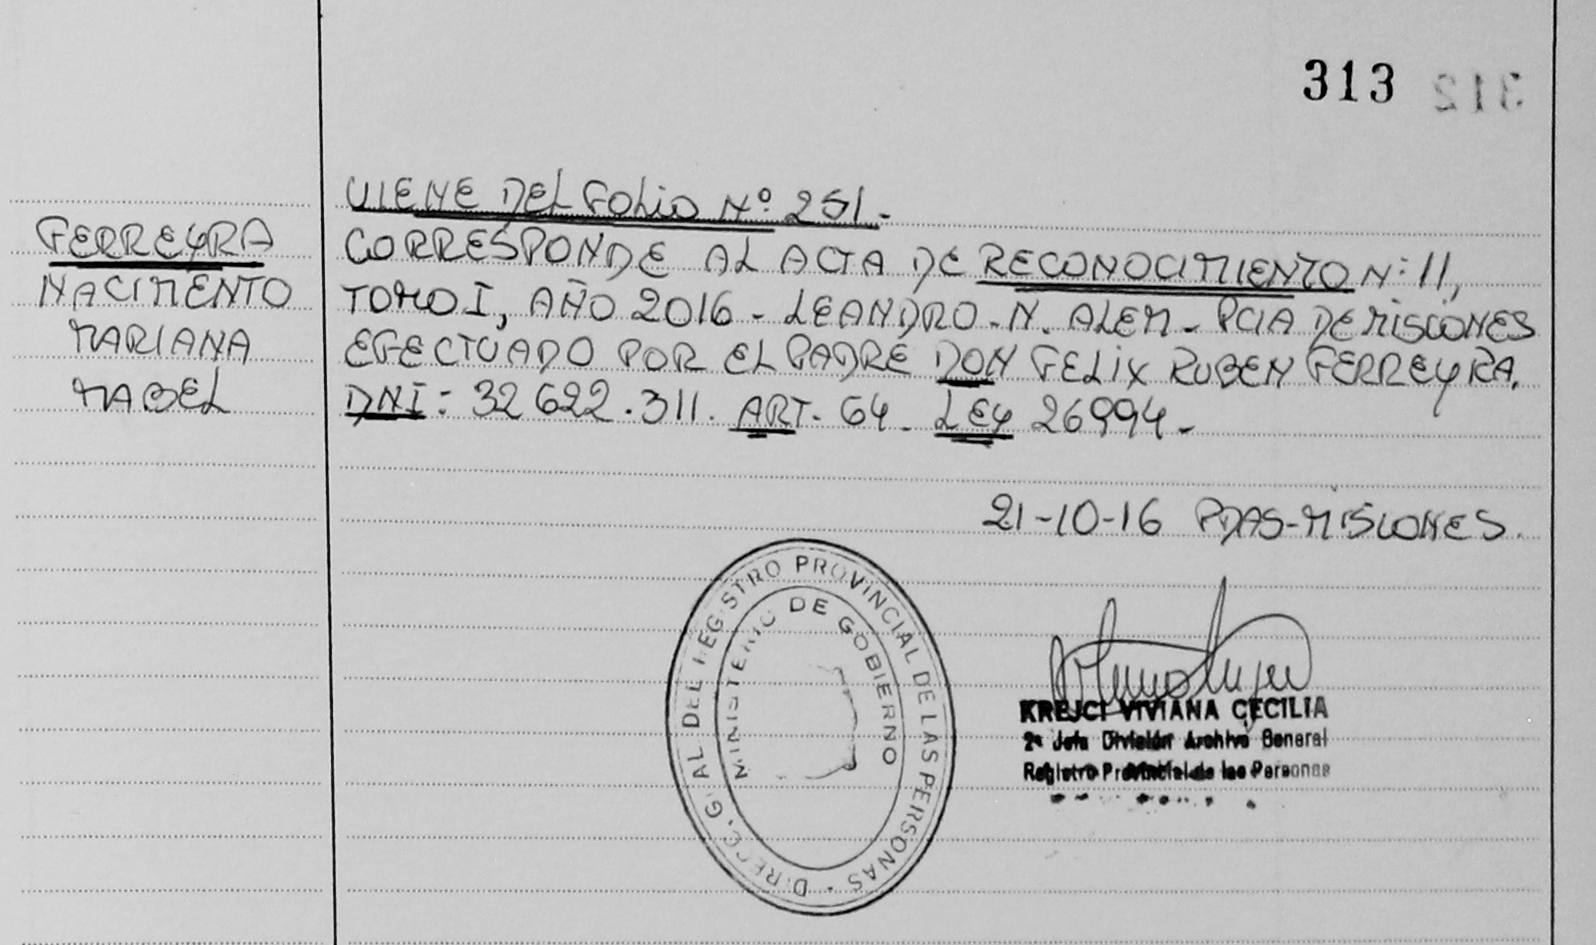 313 312
VIENE DEL FOLIO Nº 251.-
FERREYRA
NACIMENTO
MARIANA
MABEL
CORRESPONDE AL ACTA DE RECONOCIMIENTO Nº 11,
TOMO I, AÑO 2016 - LEANDRO - N. ALEM - PCIA DE MISIONES
EFECTUADO POR EL PADRE DON FELIX RUBEN FERREYRA.
DNI: 32 622.311. ART. 64. LEY 26994.-
21-10-16 PDAS-MISIONES.
DIREC. GRAL DEL REGISTRO PROVINCIAL DE LAS PERSONAS
MINISTERIO DE GOBIERNO
KREJCI VIVIANA CECILIA
2ª Jefa División Archivo General
Registro Provincial de las Personas